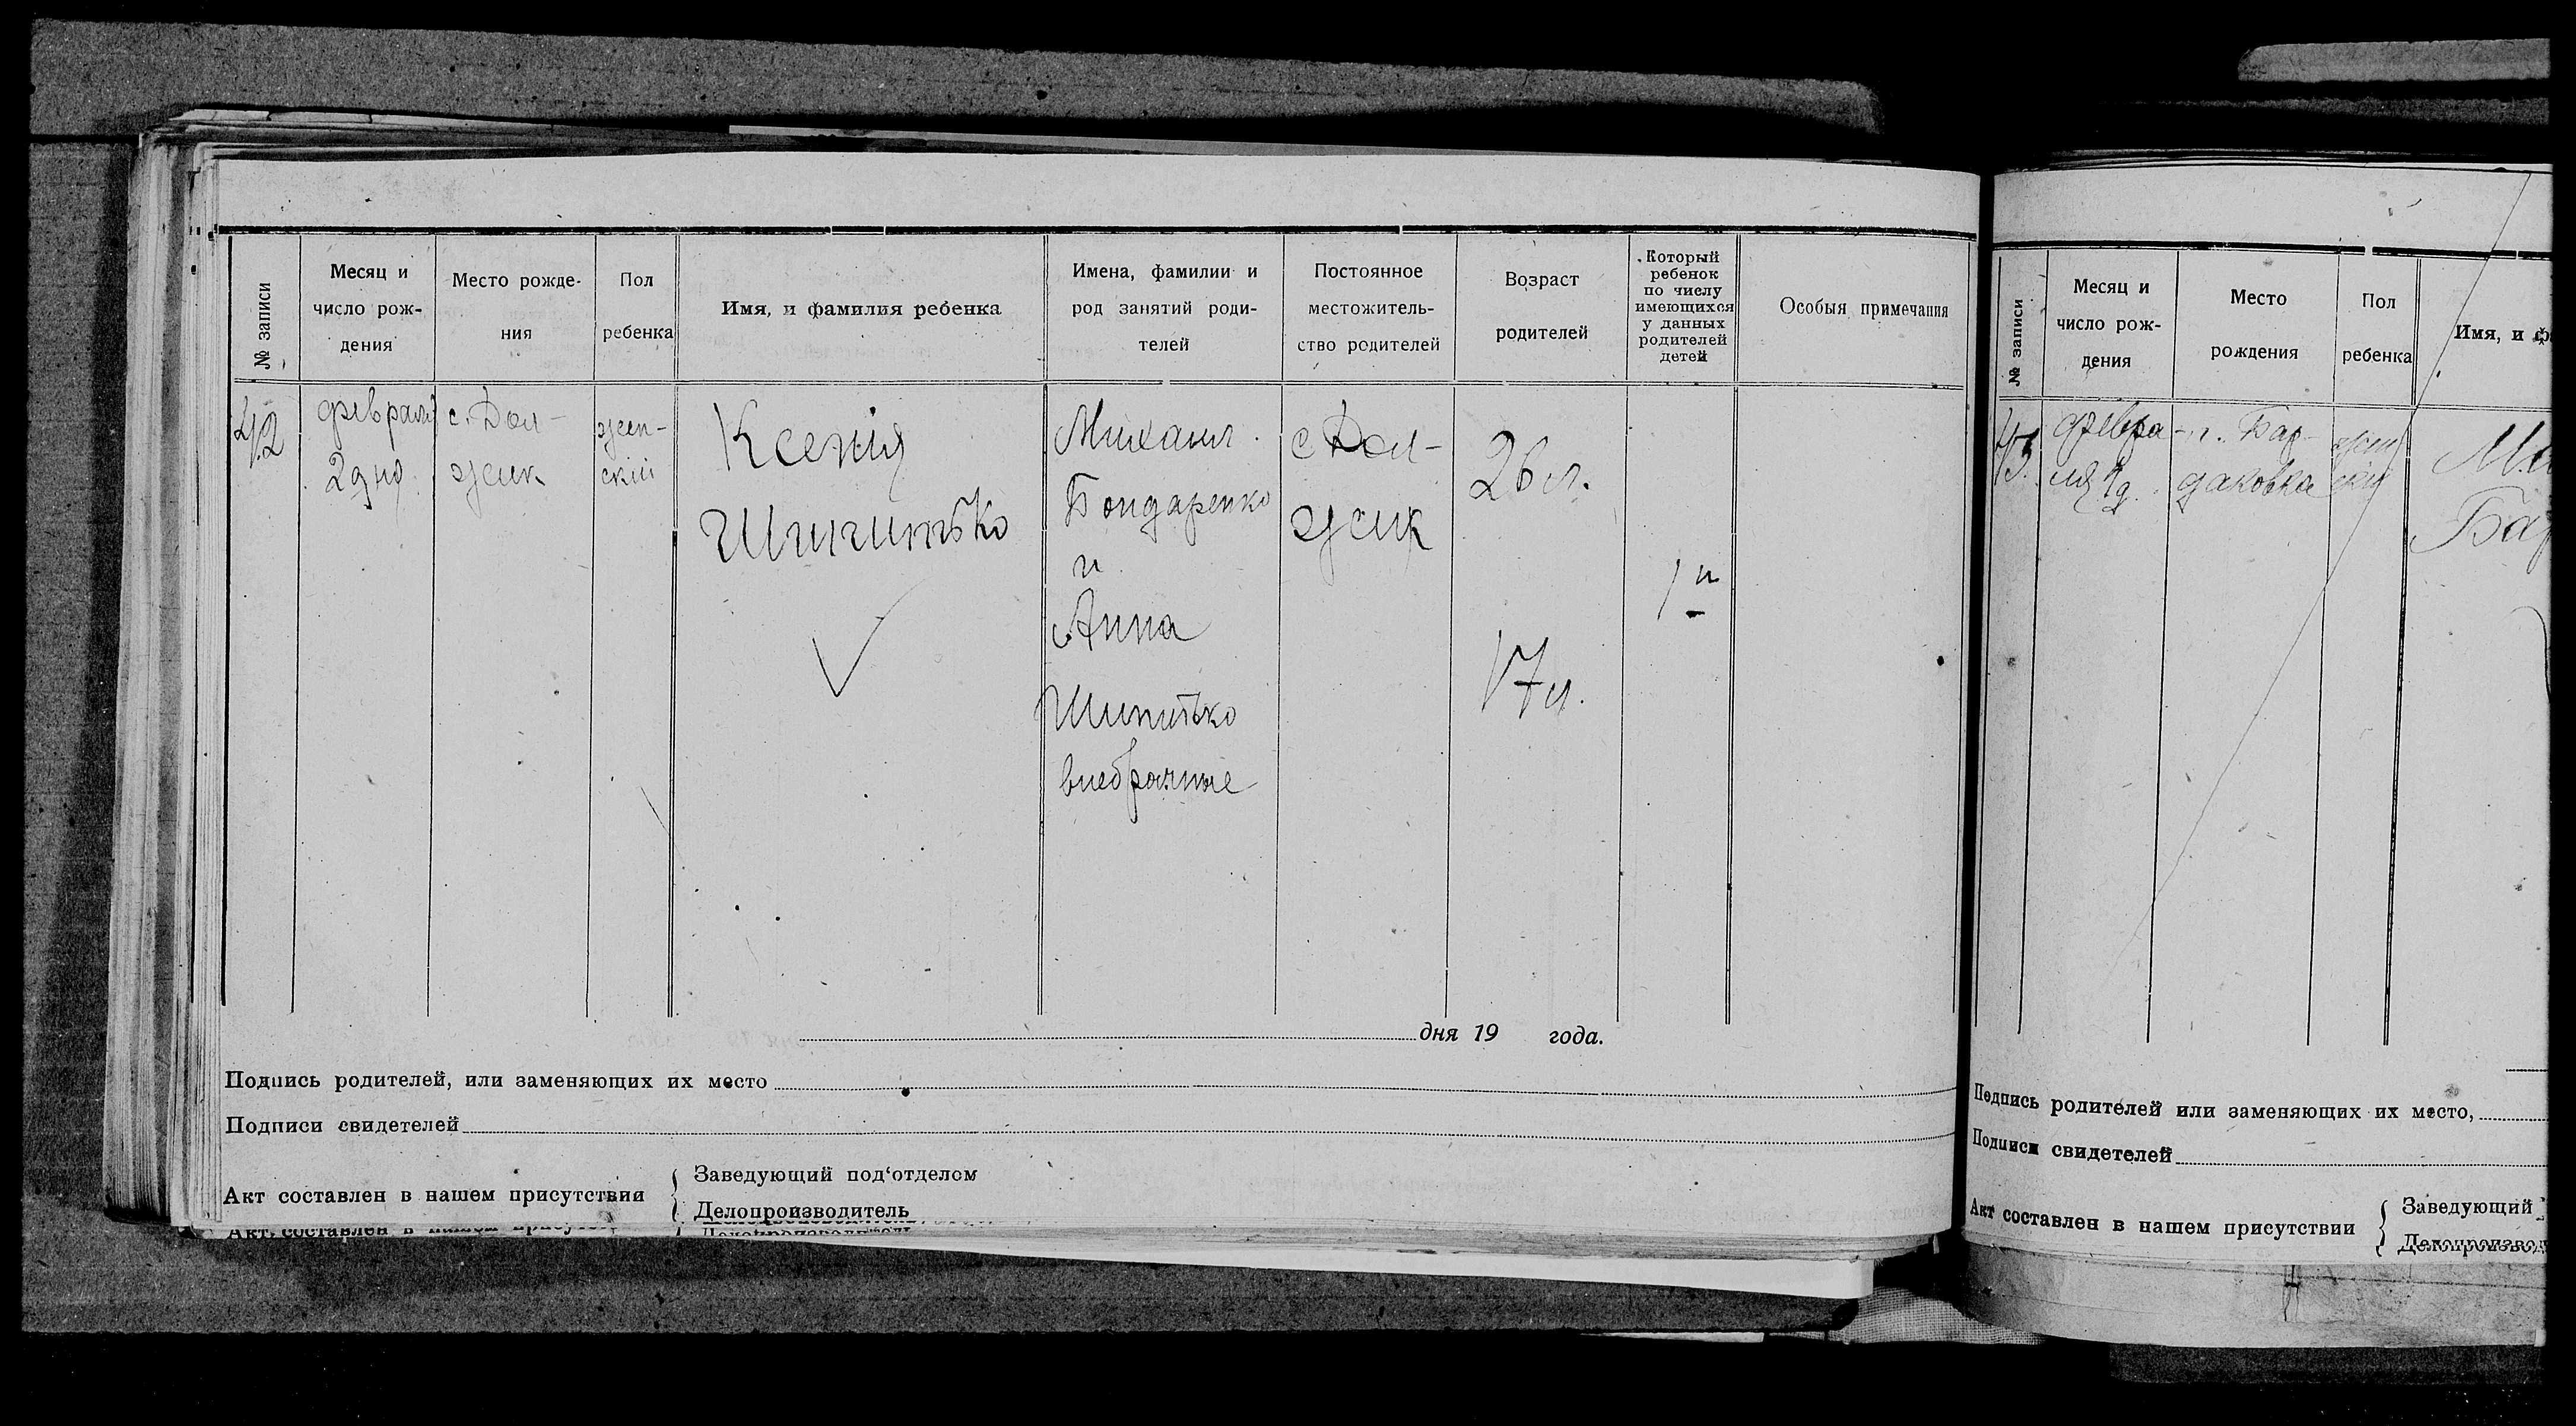 № записи
Месяц и
число рож-
дения
Место рожде-
ния
Пол
ребенка
Имя, и фамилия ребенка
Имена, фамилии и
род занятий роди-
телей
Постоянное
местожитель-
ство родителей
Возраст
родителей
Который
ребенок
по числу
имеющихся
у данных
родителей
детей
Особыя примечания
42
февраля
2 дня
с. Дол-
жик
жен-
скій
Ксенія
Михаил
Бондаренко
и
Анна
Шипитько
внебрачные
с Дол-
жик
26 л.
17 л.
1 й
дня 19 года.
Подпись родителей, или заменяющих их место
Подписи свидетелей
Акт составлен в нашем присутствии
Заведующий под‘отделом
Делопроизводитель
Акт составлен в нашем
Делопроизводитель
№ записи
Месяц и
число рож-
дения
Место
рождения
Пол
ребенка
Имя, и ф
43
февра-
ля
Бар-
даковка
Подпись родителей или заменяющих их место,
Подписи свидетелей
Акт составлен в нашем присутствии
Заведующий
Делопроизвод